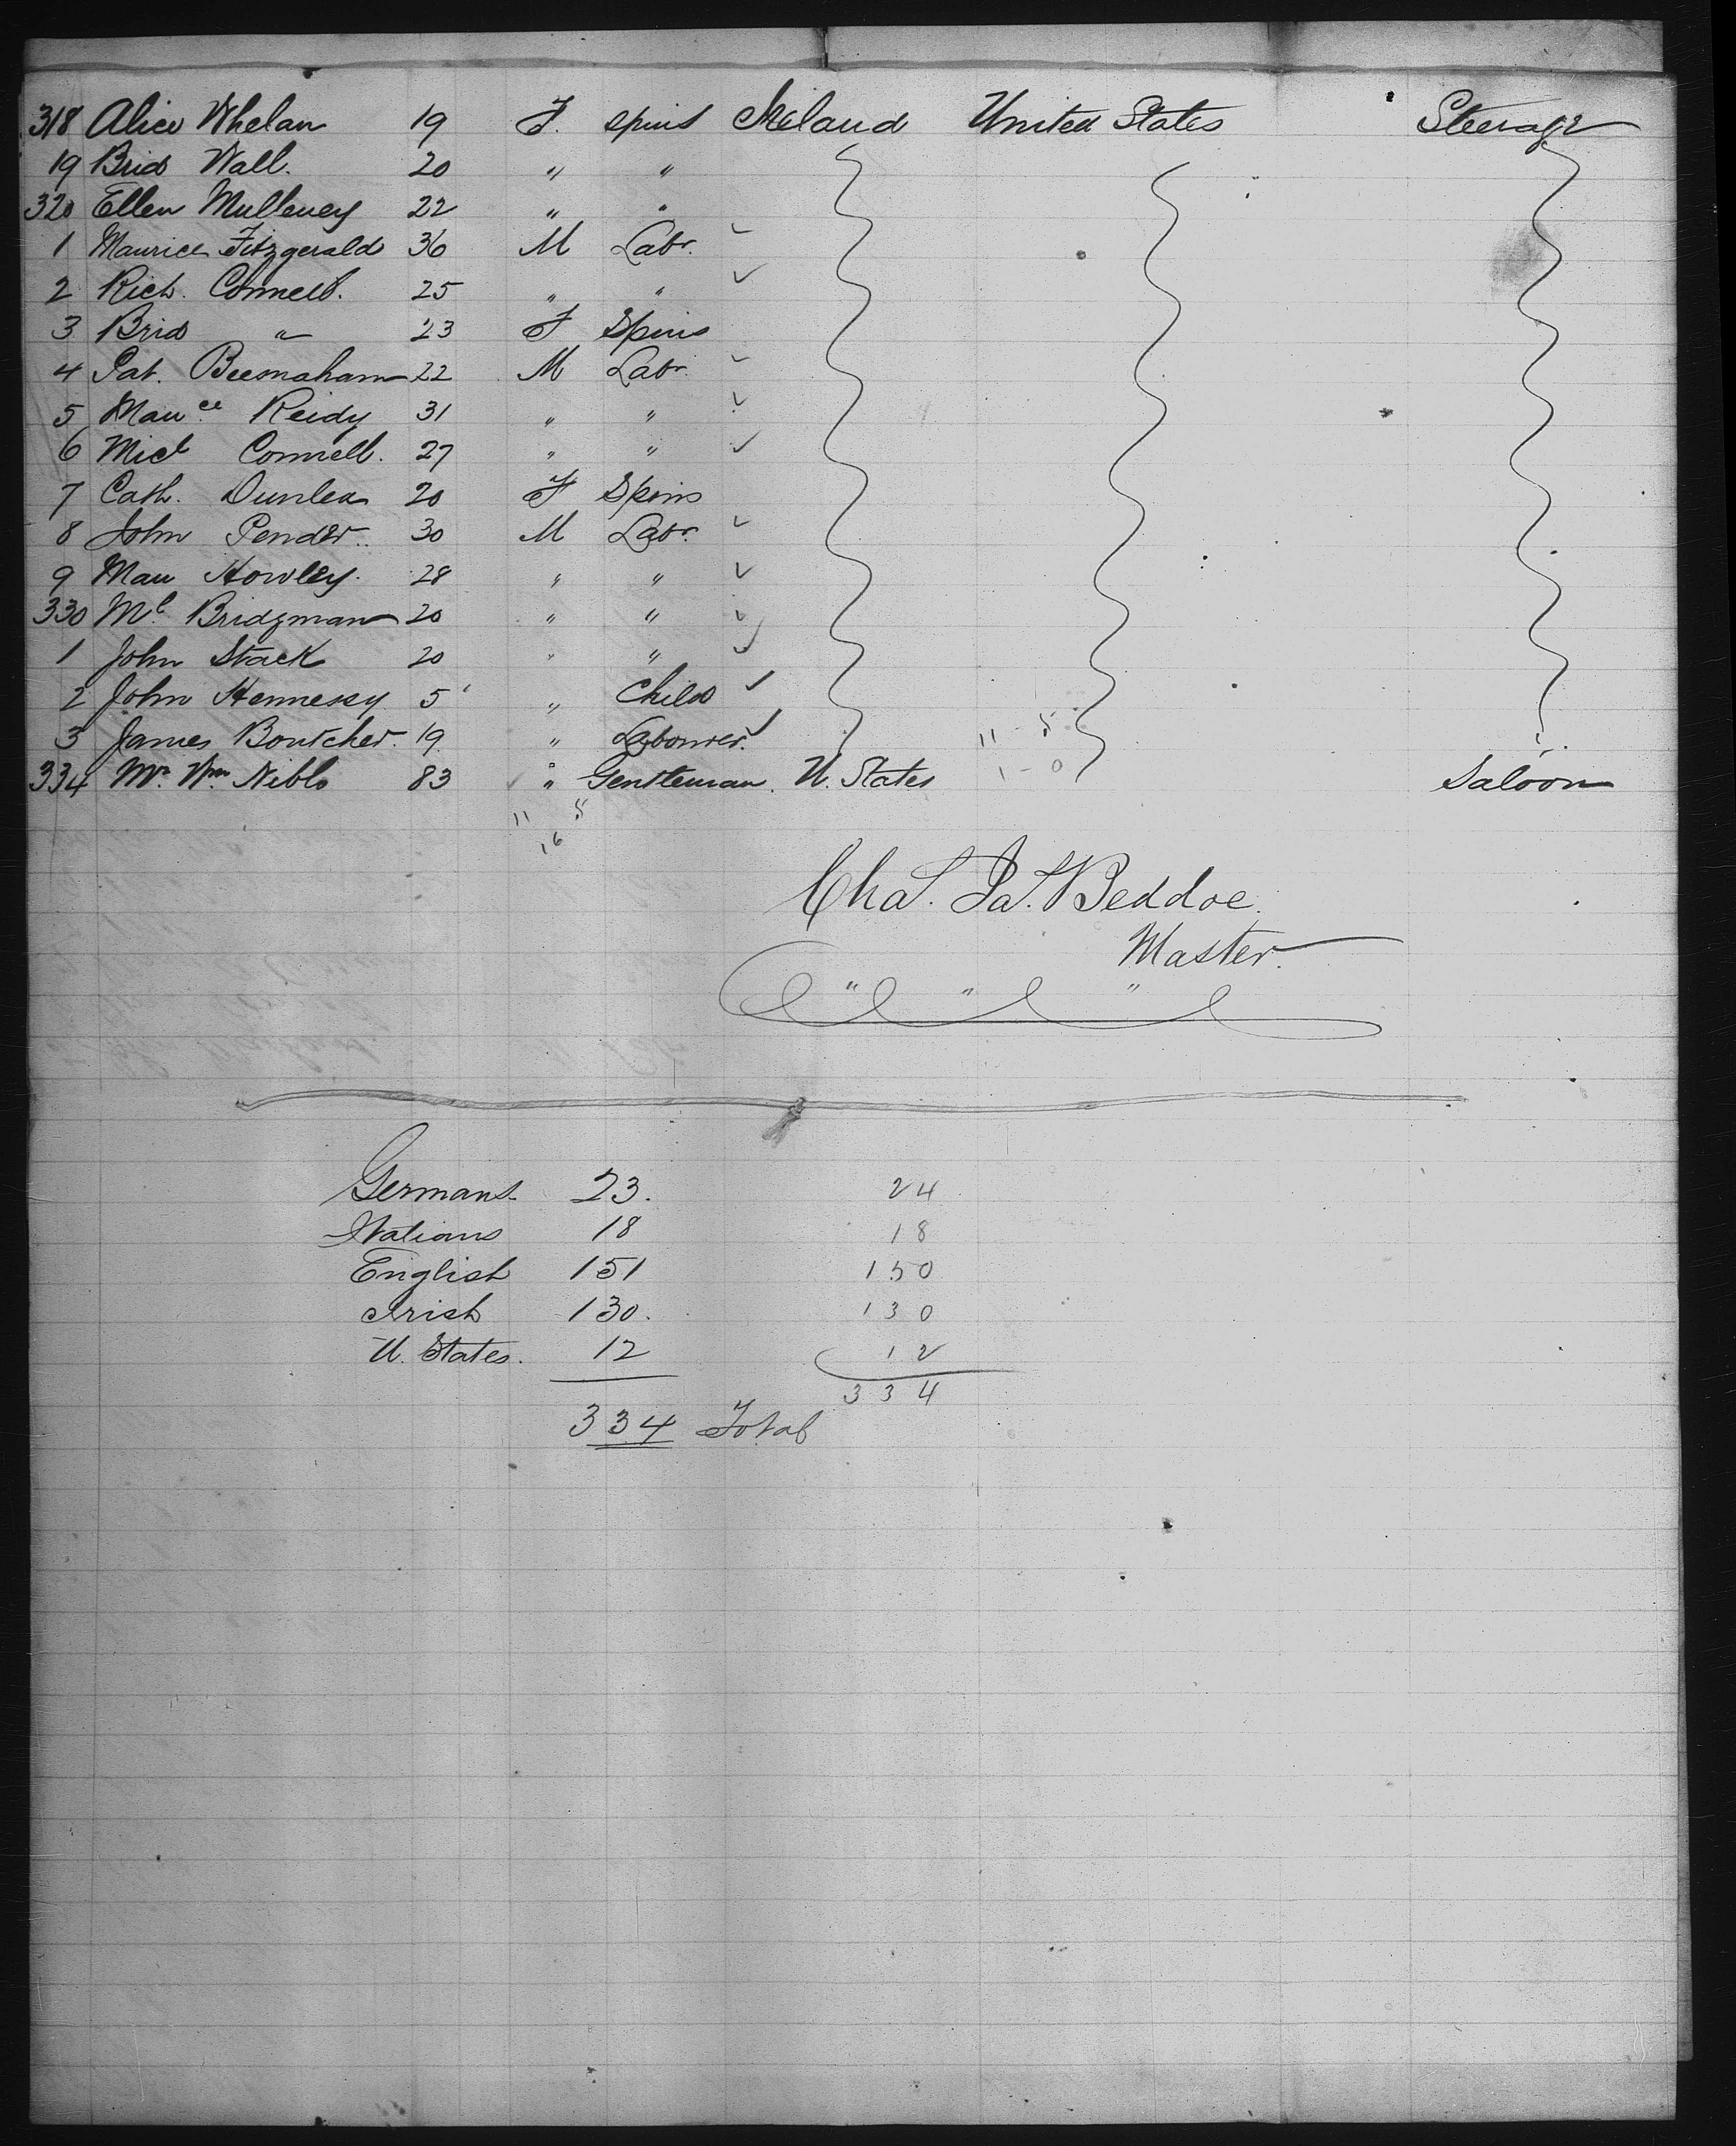 318 Alice Whelan 19 F. Spins Ireland United States Steerage
19 Brid Wall. 20 " "
320 Ellen Mulleney 22 " "
1 Maurice Fitzgerald 36 M Labr.
2 Rich. Connell. 25 " "
3 Brid " 23 F Spins
4 Pat. Beesnaham 22 M Labr.
5 Mauce Reidy 31 " "
6 Micl Connell. 27 " "
7 Cath. Dunlea 20 F Spins
8 John Pender 30 M Labr.
9 Mau Howley. 28 " "
330 Ml Bridgman 20 " "
1 John Stack 20 " "
2 John Hennessy 5 " Child
3 James Boutcher. 19. " Labourer. 11 - 5
334 Mr. Wm. Niblo 83 " Gentleman. U. States 1 - 0 Saloon
11 5
16
Chas. Ja. Beddoe.
Master.
" " "
Germans 23. 24
Italians 18 18
English 151 150
Irish 130. 130
U. States. 12 12
334
334 Total